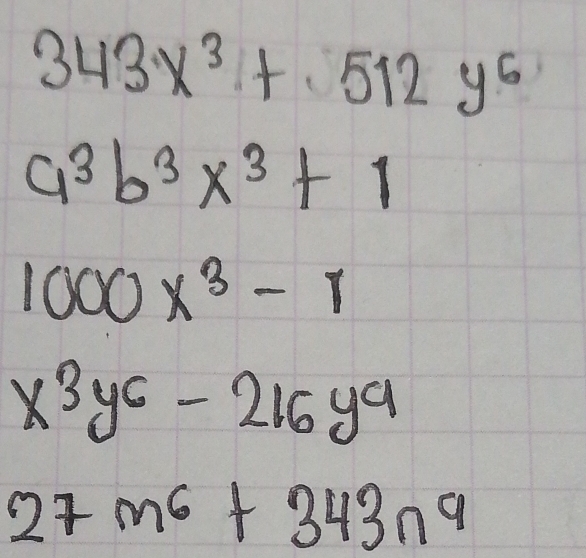 343x³ + 512 y⁶
a³b³x³ + 1
1000x³ - 1
x³y⁶ - 216y⁹
27m⁶ + 343n⁹